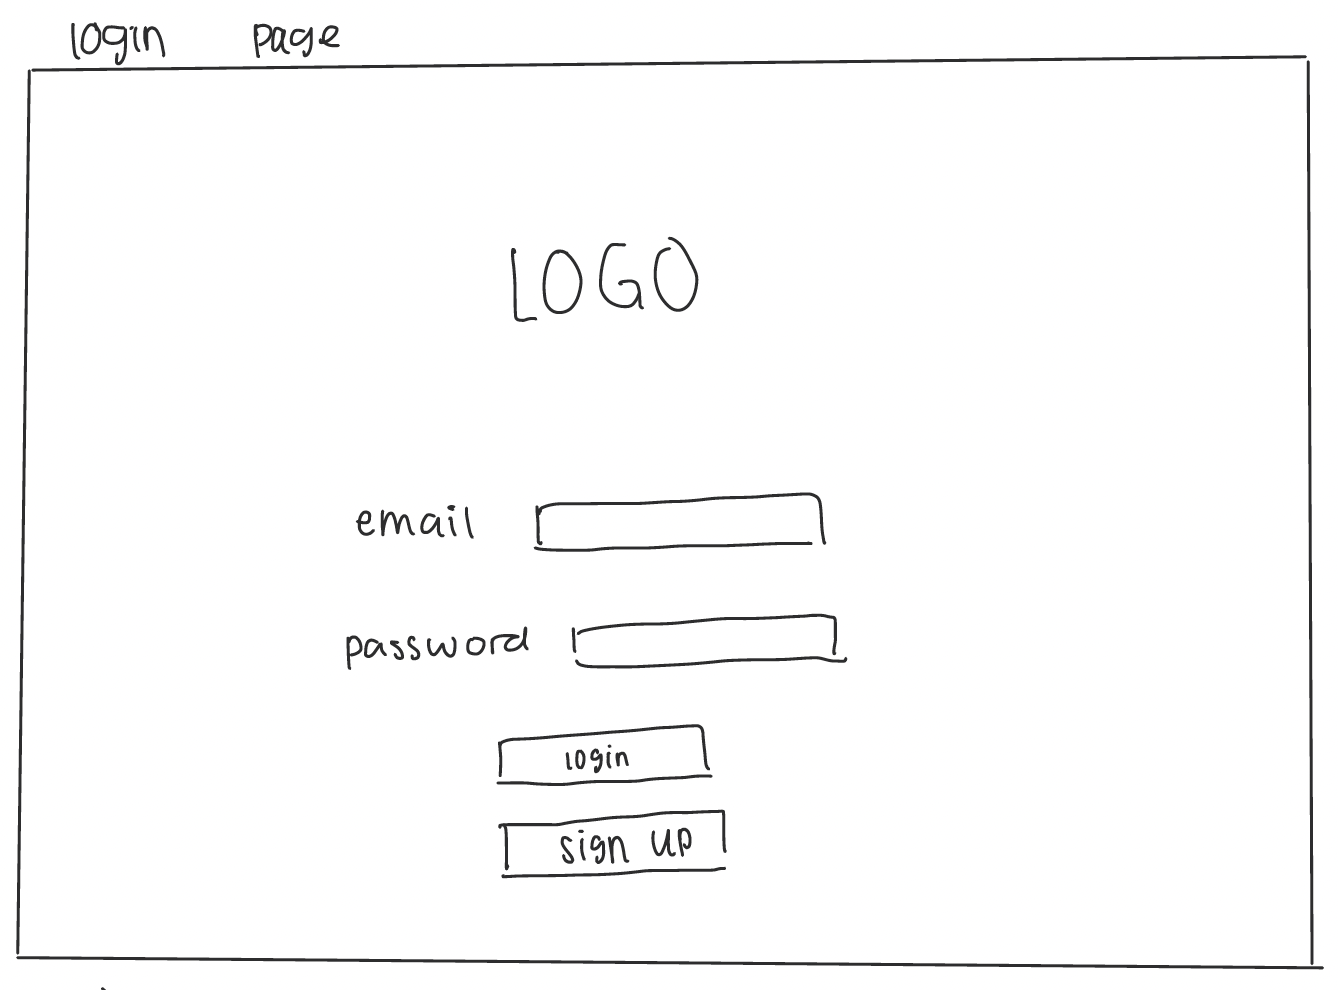 login page
LOGO
email
password
login
sign up